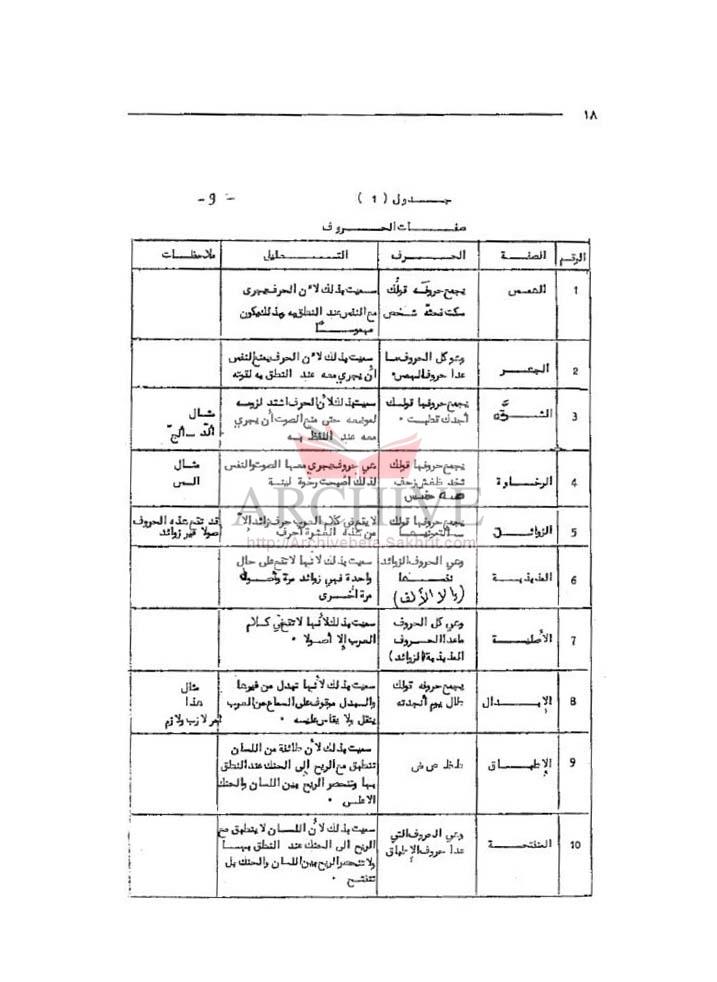 ١٨
جدول (1)
- 9 -
صفات الحروف
الرقم الصفة الحرف التحليل ملاحظات
1 الهمس يجمع حروفه قولك سميت بذلك لأن الحرف يجرى
سكت فحثه شخص مع النفس عند النطق به وبذلك يكون
مهموسا
2 الجهر وهو كل الحروف ما سميت بذلك لأن الحرف يمنع النفس
عدا حروف الهمس أن يجري معه عند النطق به لقوته
3 الشدّة يجمع حروفها قولك سميت بذلك لأن الحرف اشتد لزومه مثال
أجدك قطبت لموضعه حتى منع الصوت أن يجري الدّ - الحجّ
معه عند اللفظ به
4 الرخاوة يجمع حروفها قولك هي حروف يجري معها الصوت والنفس مثال
ثخذ ظغش زحف لذلك أصبحت رخوة لينة المس
صه ضس
5 الزوائد يجمع حروفها قولك لا يقع في كلام العرب حرف زائد إلا قد تقع هذه الحروف
من هذه العشرة أحرف أصولا غير زوائد
ARCHIVE
http://Archivebeta.Sakhrit.com
6 المذبذبة وهي الحروف الزوائد سميت بذلك لأنها لا تقع على حال
نفسها واحدة فهي زوائد مرة وأصول
(بالا الألف) مرة أخرى
7 الأصلية وهي كل الحروف سميت بذلك لأنها لا تقع في كلام
ماعدا الحروف العرب إلا أصولا .
المذبذبة (الزوائد)
8 الإبدال يجمع حروفه قولك سميت بذلك لأنها تبدل من غيرها مثال
طال يوم أنجدته والبدل موقوف على السماع من العرب هذا
ينقل ولا يقاس عليه . أمر لازب ولازم
9 الإطباق ط ظ ص ض سميت بذلك لأن طائفة من اللسان
تنطبق مع الريح إلى الحنك عند النطق
بها وتنحصر الريح بين اللسان والحنك
الأعلى .
10 المنفتحة وهي الحروف التي سميت بذلك لأن اللسان لا ينطبق مع
عدا حروف الإطباق الريح الى الحنك عند النطق بها
ولا تنحصر الريح بين اللسان والحنك بل
تنفتح .